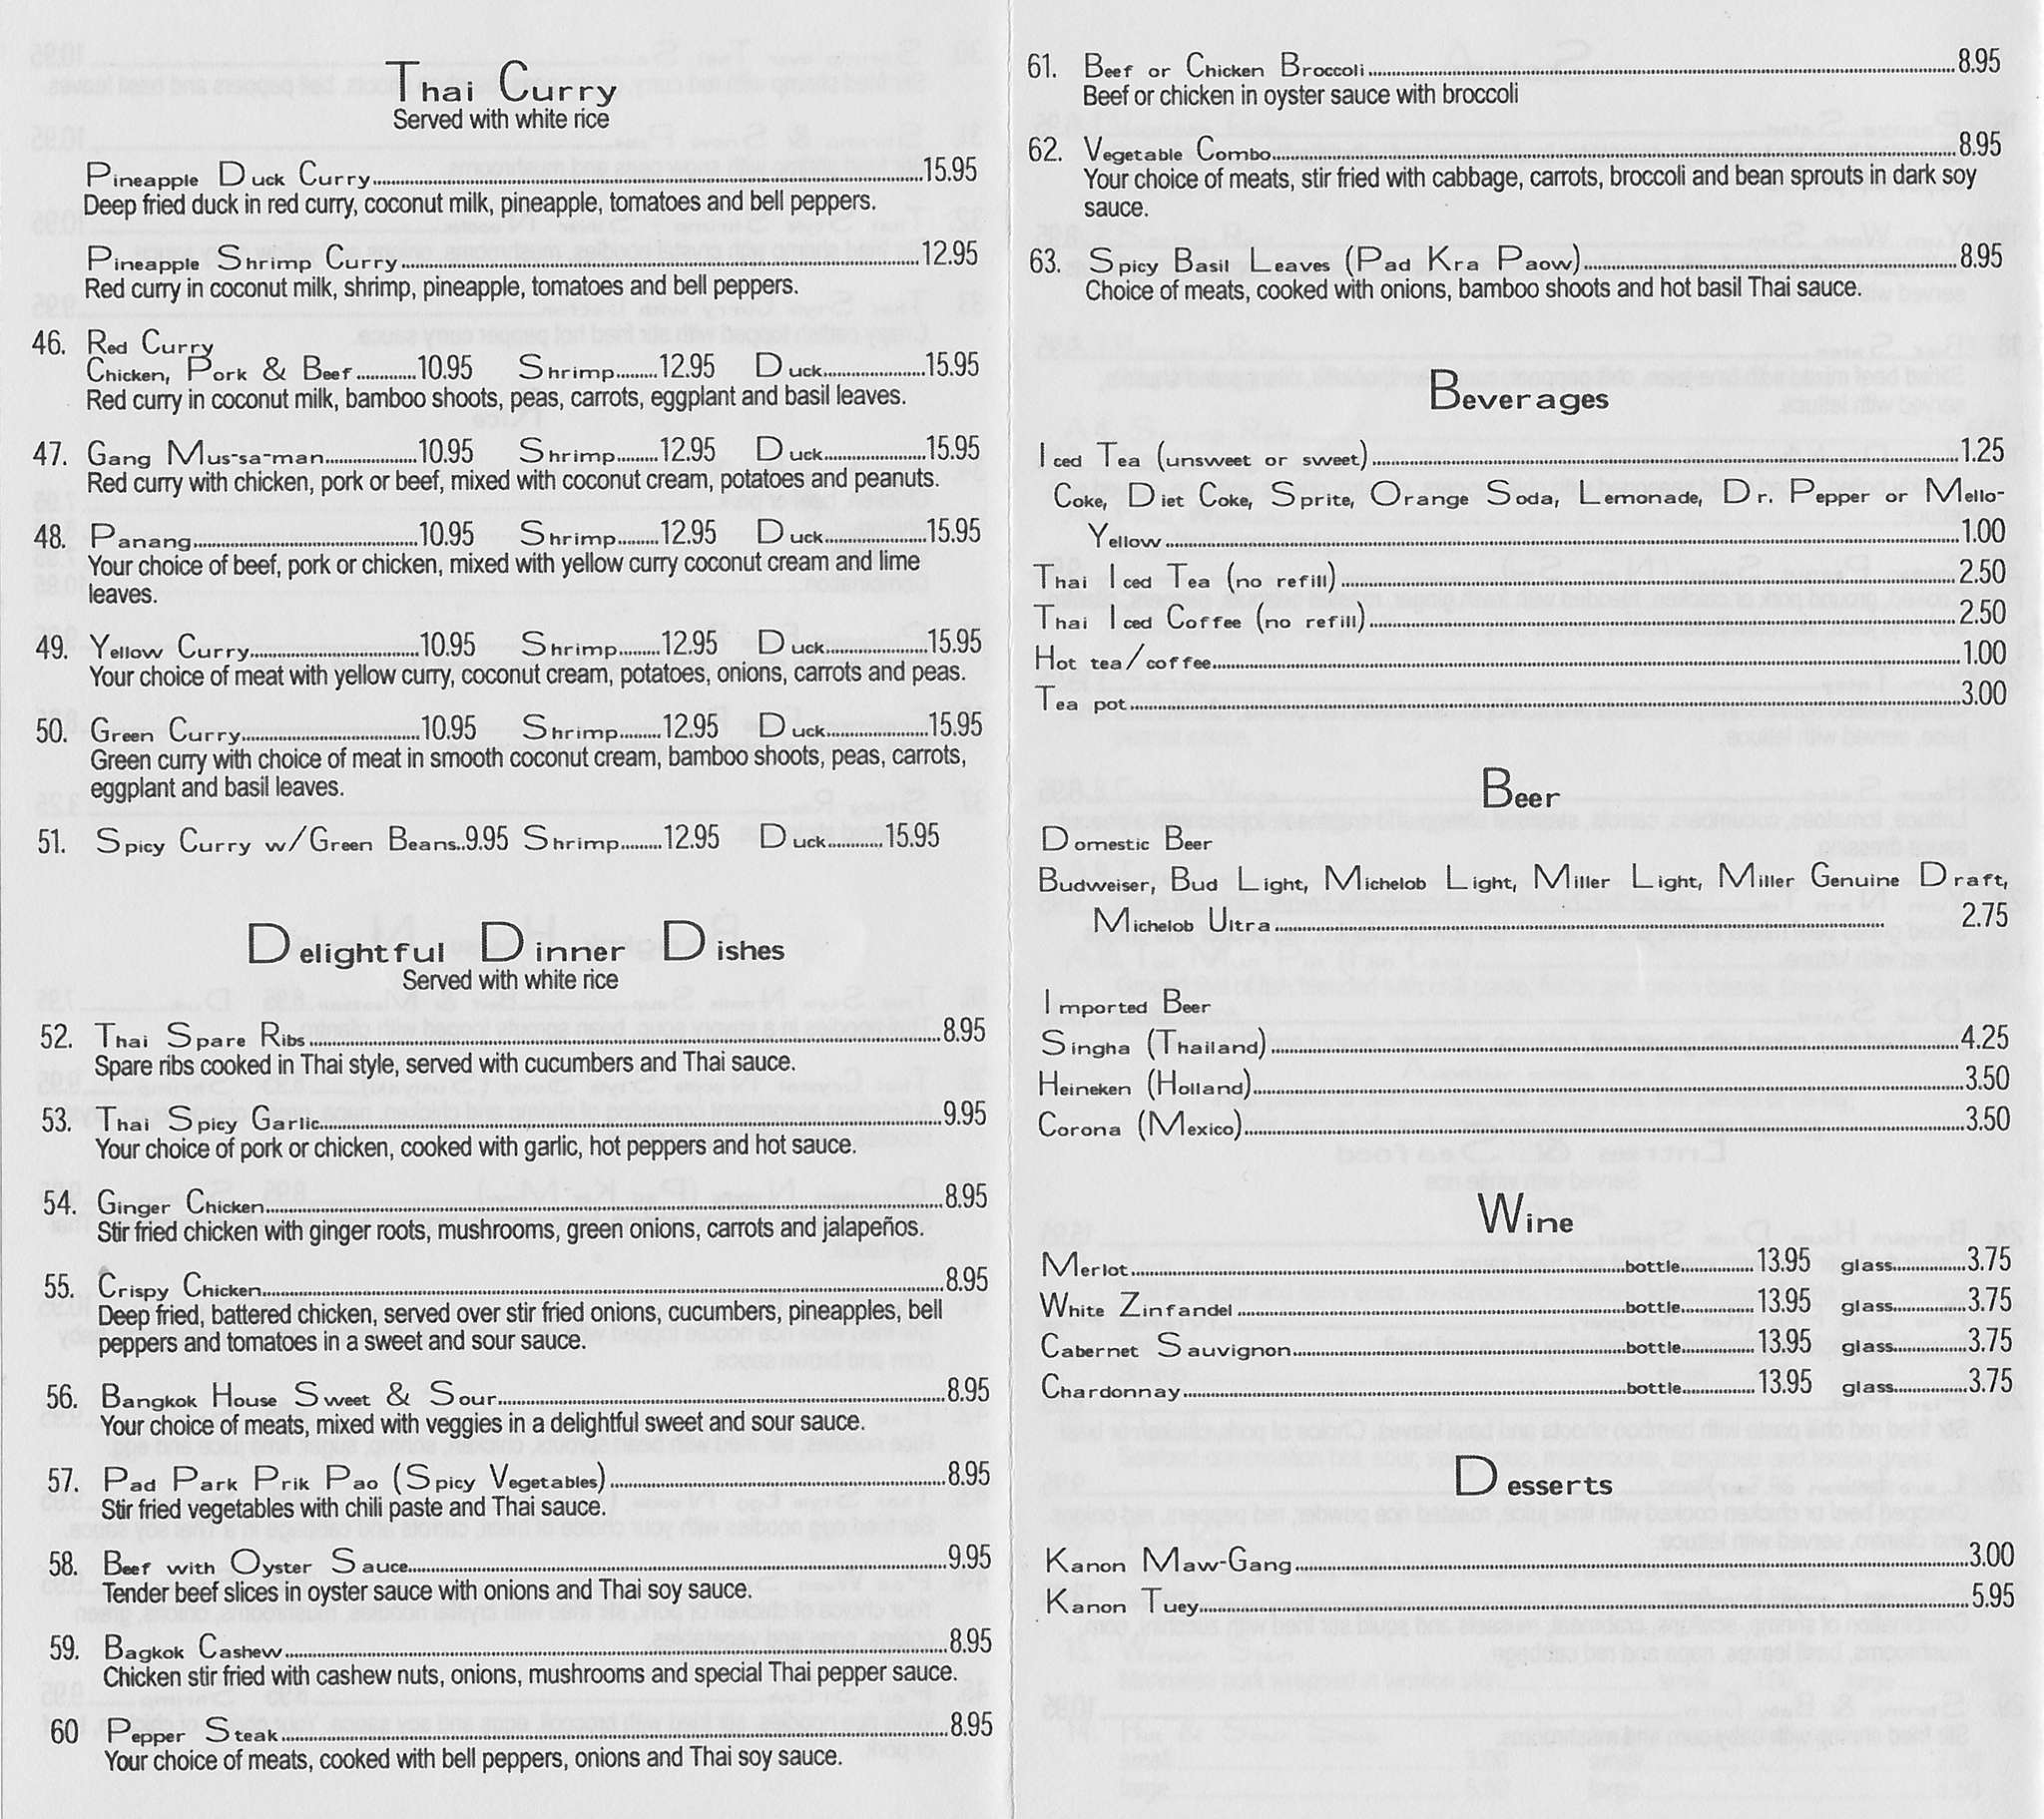 Thai Curry
Served with white rice
Pineapple Duck Curry 15.95
Deep fried duck in red curry, coconut milk, pineapple, tomatoes and bell peppers.
Pineapple Shrimp Curry 12.95
Red curry in coconut milk, shrimp, pineapple, tomatoes and bell peppers.
46. Red Curry
Chicken, Pork & Beef 10.95 Shrimp 12.95 Duck 15.95
Red curry in coconut milk, bamboo shoots, peas, carrots, eggplant and basil leaves.
47. Gang Mus-sa-man 10.95 Shrimp 12.95 Duck 15.95
Red curry with chicken, pork or beef, mixed with coconut cream, potatoes and peanuts.
48. Panang 10.95 Shrimp 12.95 Duck 15.95
Your choice of beef, pork or chicken, mixed with yellow curry coconut cream and lime
leaves.
49. Yellow Curry 10.95 Shrimp 12.95 Duck 15.95
Your choice of meat with yellow curry, coconut cream, potatoes, onions, carrots and peas.
50. Green Curry 10.95 Shrimp 12.95 Duck 15.95
Green curry with choice of meat in smooth coconut cream, bamboo shoots, peas, carrots,
eggplant and basil leaves.
51. Spicy Curry w/Green Beans..9.95 Shrimp 12.95 Duck 15.95
Delightful Dinner Dishes
Served with white rice
52. Thai Spare Ribs 8.95
Spare ribs cooked in Thai style, served with cucumbers and Thai sauce.
53. Thai Spicy Garlic 9.95
Your choice of pork or chicken, cooked with garlic, hot peppers and hot sauce.
54. Ginger Chicken 8.95
Stir fried chicken with ginger roots, mushrooms, green onions, carrots and jalapeños.
55. Crispy Chicken 8.95
Deep fried, battered chicken, served over stir fried onions, cucumbers, pineapples, bell
peppers and tomatoes in a sweet and sour sauce.
56. Bangkok House Sweet & Sour 8.95
Your choice of meats, mixed with veggies in a delightful sweet and sour sauce.
57. Pad Park Prik Pao (Spicy Vegetables) 8.95
Stir fried vegetables with chili paste and Thai sauce.
58. Beef with Oyster Sauce 9.95
Tender beef slices in oyster sauce with onions and Thai soy sauce.
59. Bagkok Cashew 8.95
Chicken stir fried with cashew nuts, onions, mushrooms and special Thai pepper sauce.
60 Pepper Steak 8.95
Your choice of meats, cooked with bell peppers, onions and Thai soy sauce.
61. Beef or Chicken Broccoli 8.95
Beef or chicken in oyster sauce with broccoli
62. Vegetable Combo 8.95
Your choice of meats, stir fried with cabbage, carrots, broccoli and bean sprouts in dark soy
sauce.
63. Spicy Basil Leaves (Pad Kra Paow) 8.95
Choice of meats, cooked with onions, bamboo shoots and hot basil Thai sauce.
Beverages
Iced Tea (unsweet or sweet) 1.25
Coke, Diet Coke, Sprite, Orange Soda, Lemonade, Dr. Pepper or Mello-
Yellow 1.00
Thai Iced Tea (no refill) 2.50
Thai Iced Coffee (no refill) 2.50
Hot tea/coffee 1.00
Tea pot 3.00
Beer
Domestic Beer
Budweiser, Bud Light, Michelob Light, Miller Light, Miller Genuine Draft,
Michelob Ultra 2.75
Imported Beer
Singha (Thailand) 4.25
Heineken (Holland) 3.50
Corona (Mexico) 3.50
Wine
Merlot bottle 13.95 glass 3.75
White Zinfandel bottle 13.95 glass 3.75
Cabernet Sauvignon bottle 13.95 glass 3.75
Chardonnay bottle 13.95 glass 3.75
Desserts
Kanon Maw-Gang 3.00
Kanon Tuey 5.95